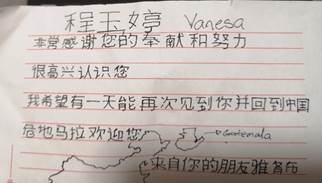 程玉婷 Vanesa
非常感谢您的奉献和努力
很高兴认识您
我希望有一天能再次见到你并回到中国
危地马拉欢迎您 → Guatemala
来自你的朋友雅各布